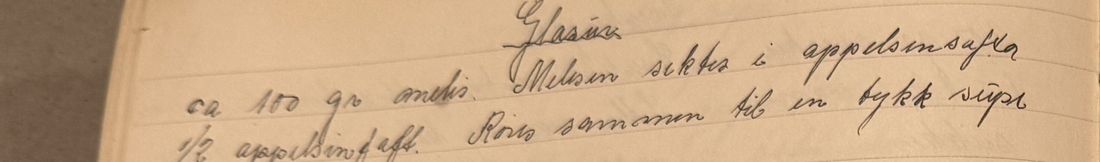 Glasur
ca 100 gr melis. Melisen siktes i appelsinsafta
1/2 appelsinsaft. Røres sammen til en tykk suppe